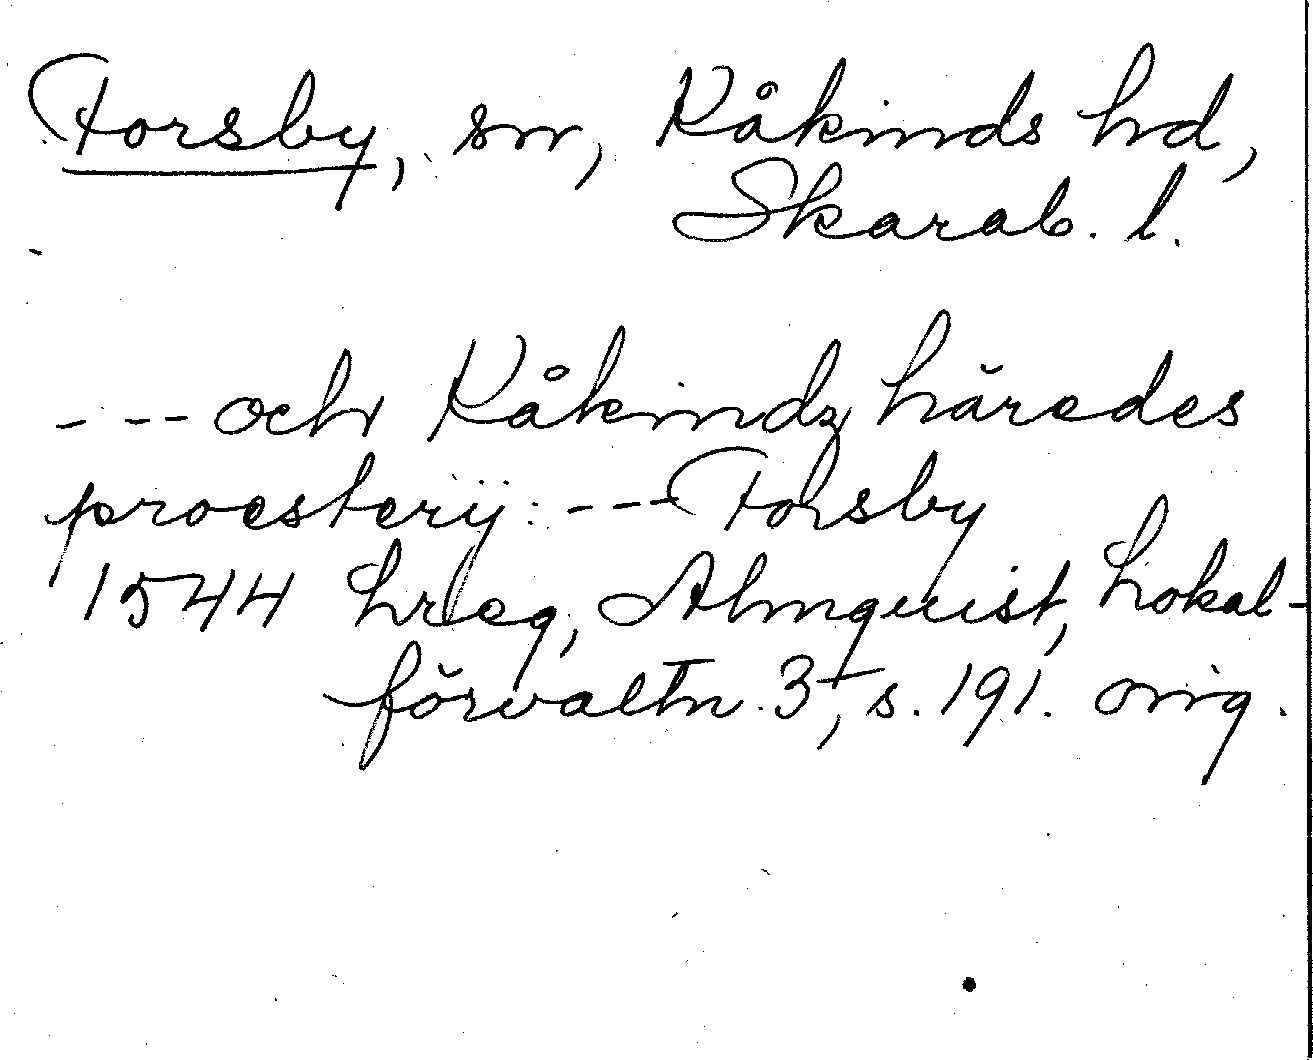 Forsby, sn, Kåkinds hd,
Skarab. l.
--- och Kåkindz häredes
proesterÿ: --- Forsby
1544 hreg, Almquist, Lokal-
förvaltn. 3, s. 191. orig.